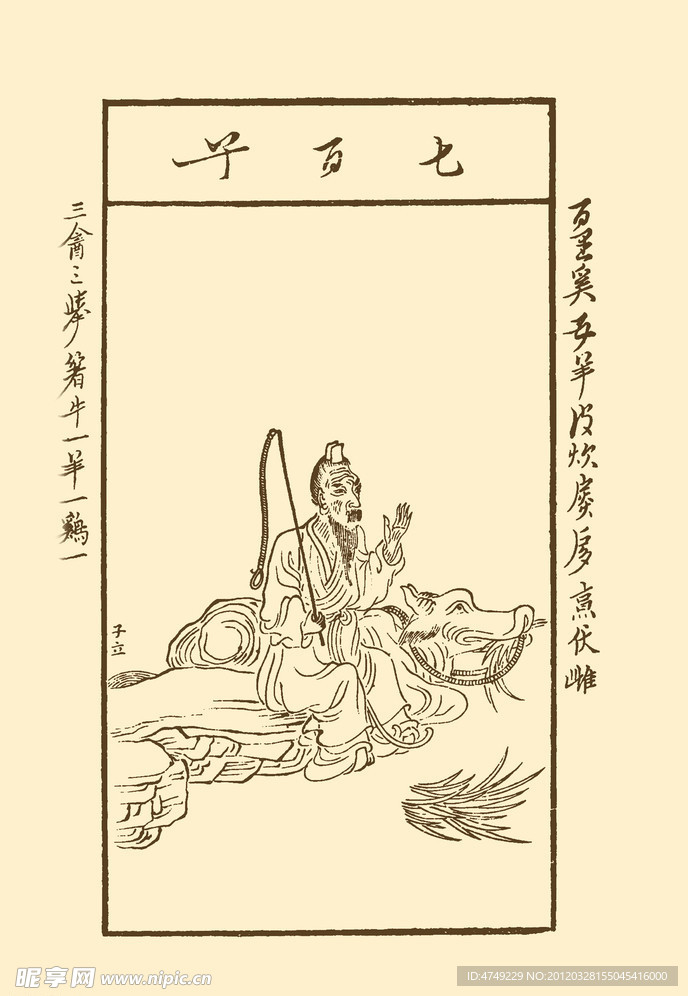 七百子
百里奚五羊皮炊扊扅烹伏雌
三禽三 箸牛一羊一鷄一
子立
昵享网 www.nipic.cn
ID:4749229 NO:20120328155045416000